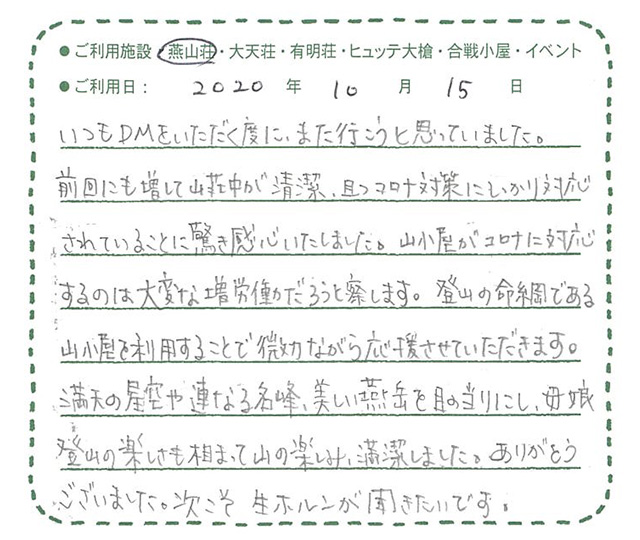 ● ご利用施設 燕山荘・大天荘・有明荘・ヒュッテ大槍・合戦小屋・イベント
● ご利用日： 2020 年 10 月 15 日
いつもDMをいただく度に、また行こうと思っていました。
前回にも増して山荘中が清潔、且つコロナ対策にしっかり対応
されていることに驚き感心いたしました。山小屋がコロナに対応
するのは大変な増労働だろうと察します。登山の命綱である
山小屋を利用することで微力ながら応援させていただきます。
満天の星空や連なる名峰、美しい燕岳を目の当りにし、母娘
登山の楽しさも相まって山の楽しみ、満潔しました。ありがとう
ございました。次こそ 生ホルンが聞きたいです。